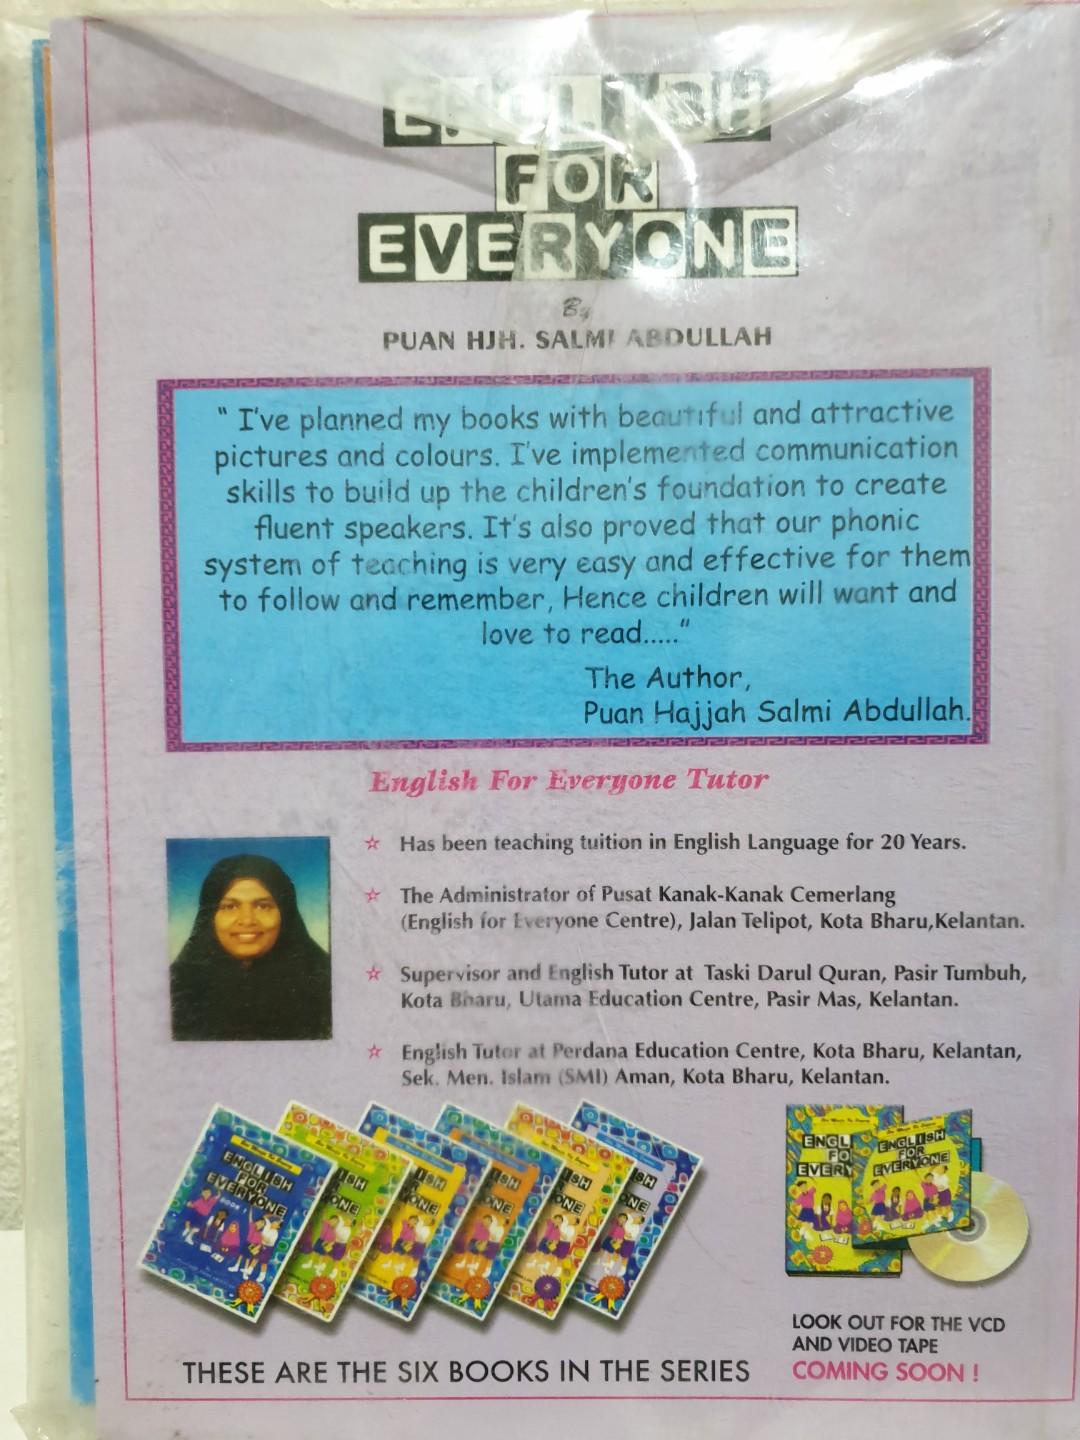 ENGLISH
FOR
EVERYONE
By
PUAN HJH. SALMI ABDULLAH
" I've planned my books with beautiful and attractive
pictures and colours. I've implemented communication
skills to build up the children's foundation to create
fluent speakers. It's also proved that our phonic
system of teaching is very easy and effective for them
to follow and remember, Hence children will want and
love to read....."
The Author,
Puan Hajjah Salmi Abdullah.
English For Everyone Tutor
☆ Has been teaching tuition in English Language for 20 Years.
☆ The Administrator of Pusat Kanak-Kanak Cemerlang
(English for Everyone Centre), Jalan Telipot, Kota Bharu,Kelantan.
☆ Supervisor and English Tutor at Taski Darul Quran, Pasir Tumbuh,
Kota Bharu, Utama Education Centre, Pasir Mas, Kelantan.
☆ English Tutor at Perdana Education Centre, Kota Bharu, Kelantan,
Sek. Men. Islam (SMI) Aman, Kota Bharu, Kelantan.
ENGLISH
FOR
EVERYONE
BOOK 1
ISH
ONE
ISH
ONE
ISH
ONE
ISH
ONE
ISH
ONE
ENGL
FO
EVERY
ENGLISH
FOR
EVERYONE
THESE ARE THE SIX BOOKS IN THE SERIES
LOOK OUT FOR THE VCD
AND VIDEO TAPE
COMING SOON !